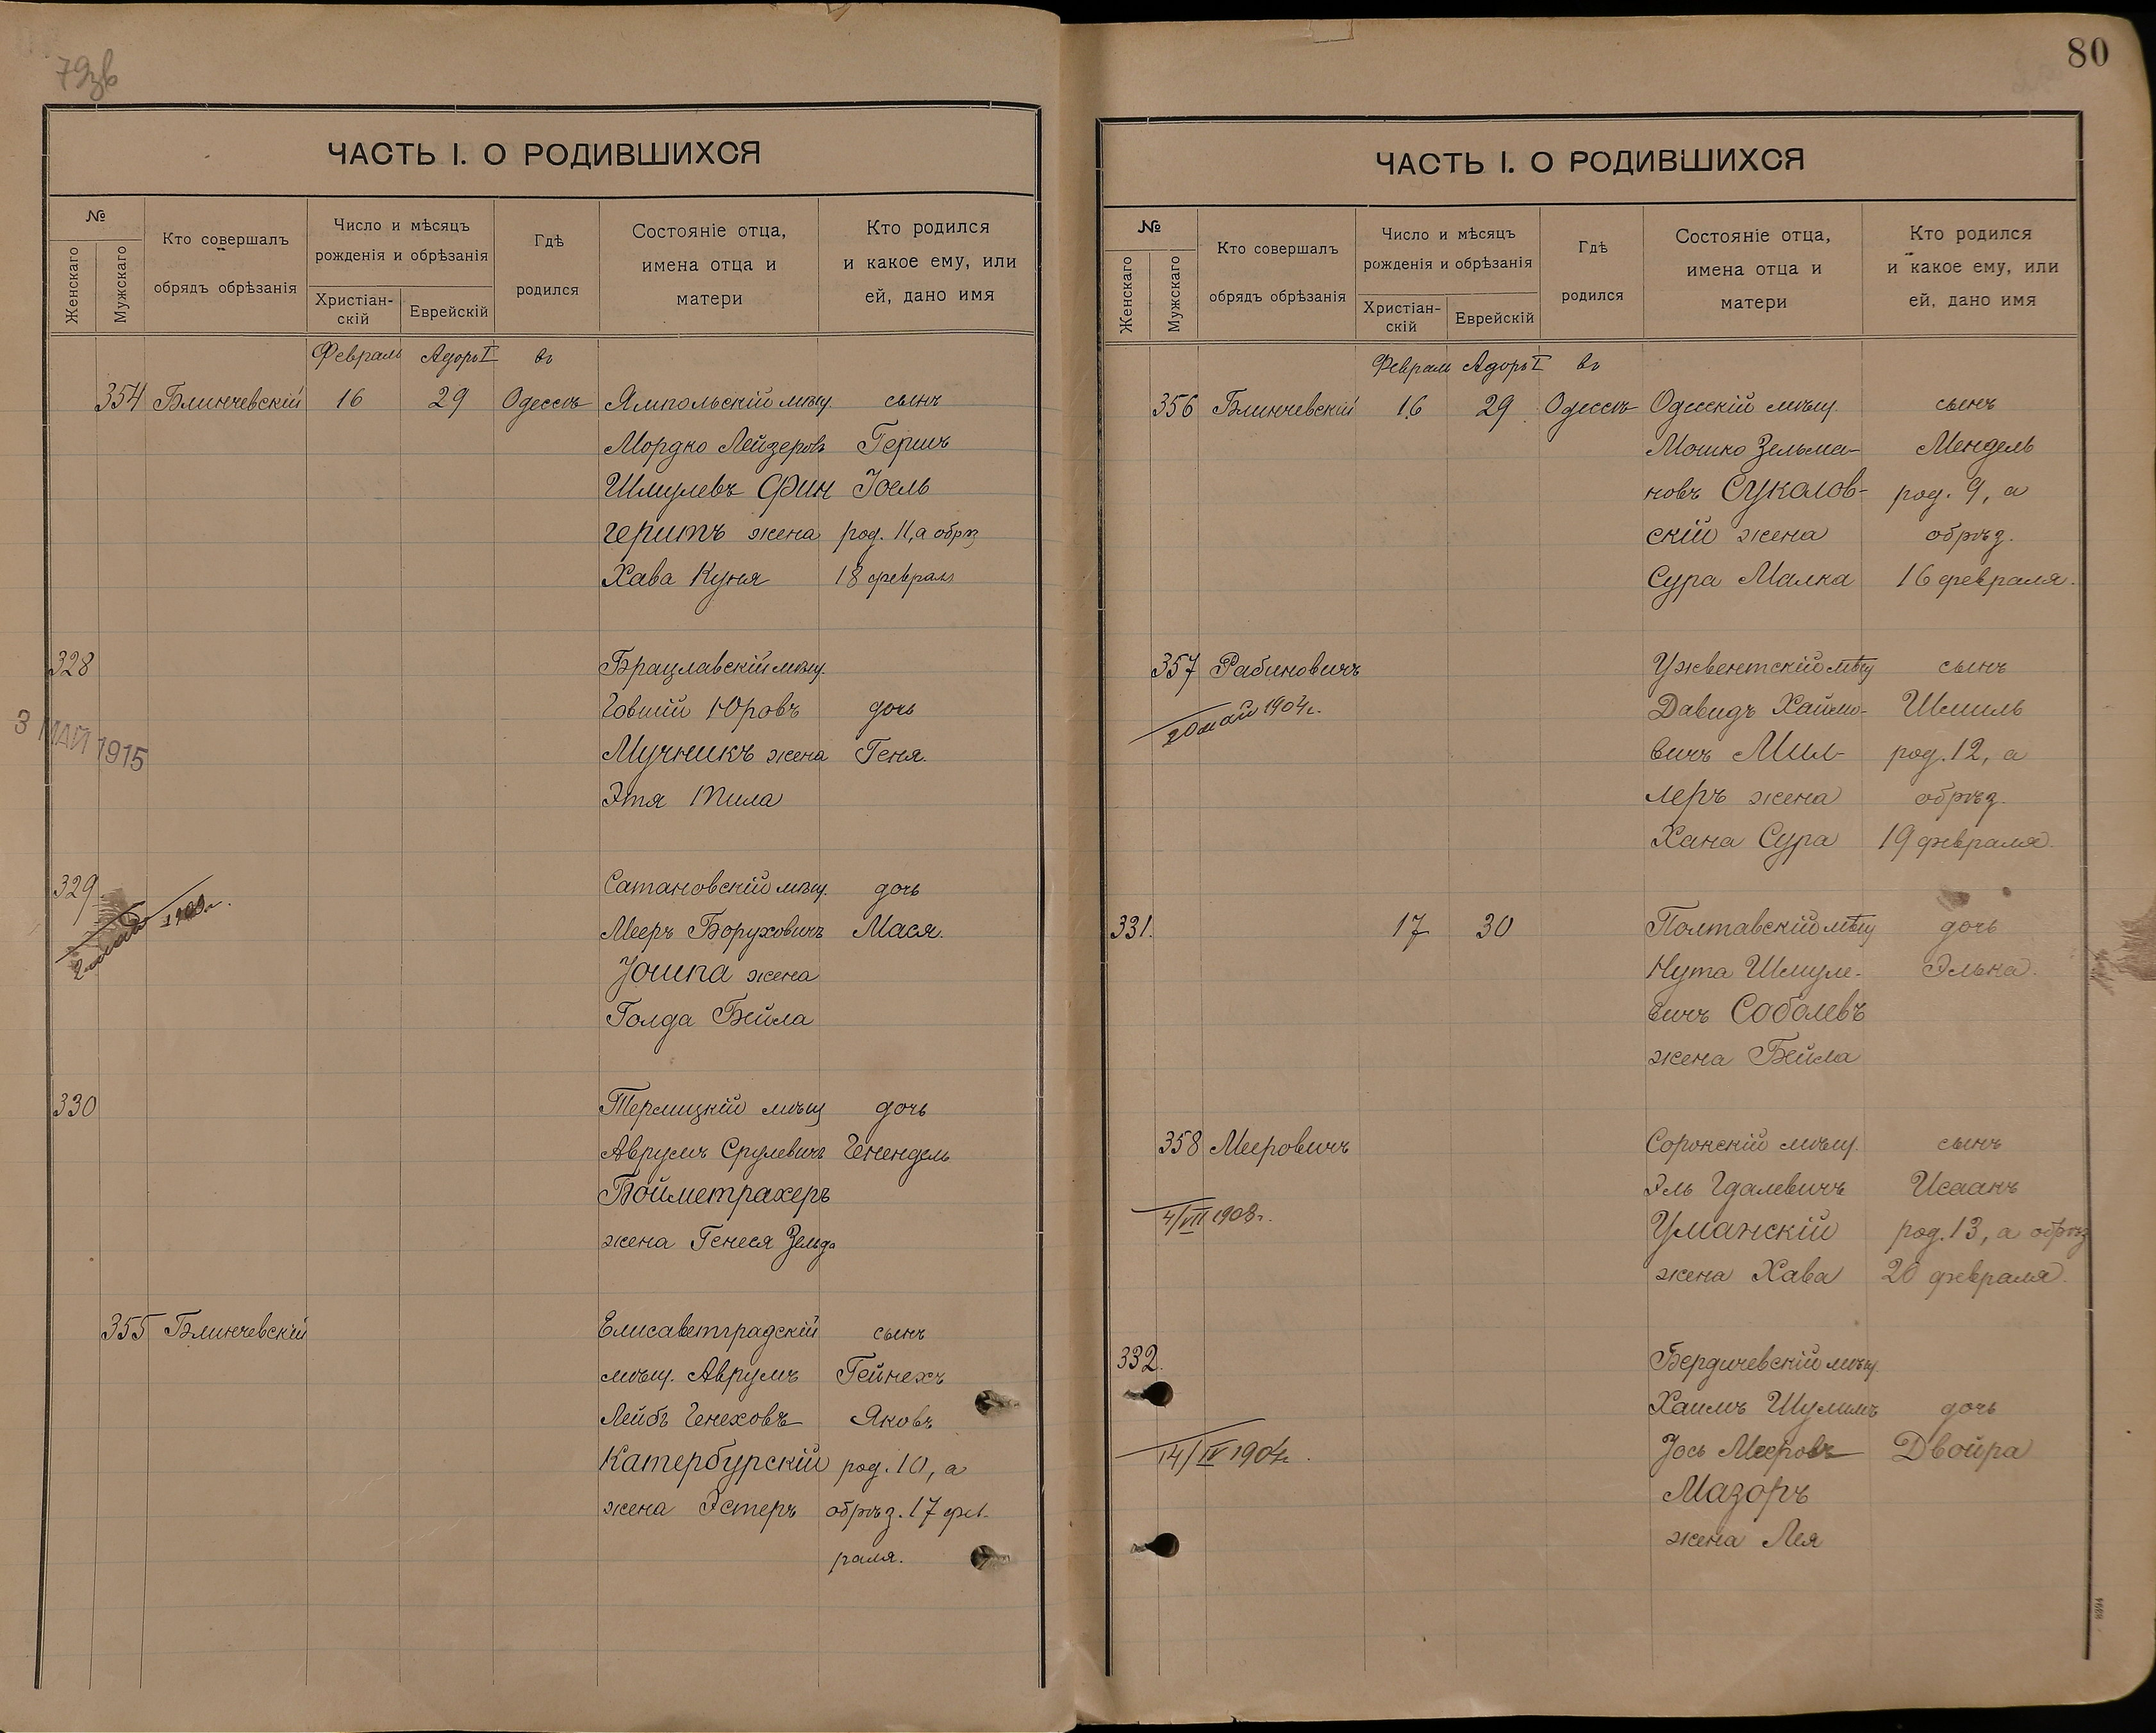 79зв
ЧАСТЬ I. О РОДИВШИХСЯ
№
Женскаго
Мужскаго
Кто совершалъ
обрядъ обрѣзанія
Число и мѣсяцъ
рожденія и обрѣзанія
Христіан-
скій
Еврейскій
Гдѣ
родился
Состояніе отца,
имена отца и
матери
Кто родился
и какое ему, или
ей, дано имя
Февраль Адоръ I въ
354 Блинчевскій 16 29 Одессѣ Ямпольскій мѣщ. сынъ
Мордко Лейзеровъ Гершъ
Шмулевъ Фин Іоель
геритъ жена род. 11, а обрѣз
Хава Куня 18 февраля
328 Брацлавскій мѣщ.
Говшій Юровъ дочь
3 МАЙ 1915
Мучникъ жена Геня.
Этя Тила
329 Сатановскій мѣщ. дочь
Мееръ Боруховичъ Мася.
Іошпа жена
Голда Бейла
330 Терлицкій мѣщ дочь
Аврумъ Срулевичъ Генендель
Бойметрахеръ
жена Генеся Зельда
355 Блинчевскій Елисаветградскій сынъ
мѣщ. Аврумъ Гейнехъ
Лейбъ Генеховъ Яковъ
Катербурскій род. 10, а
жена Эстеръ обрѣз. 17 фев-
раля.
80
ЧАСТЬ I. О РОДИВШИХСЯ
№
Женскаго
Мужскаго
Кто совершалъ
обрядъ обрѣзанія
Число и мѣсяцъ
рожденія и обрѣзанія
Христіан-
скій
Еврейскій
Гдѣ
родился
Состояніе отца,
имена отца и
матери
Кто родился
и какое ему, или
ей, дано имя
Февраль Адоръ I въ
356 Блинчевскій 16 29 Одессѣ Одесскій мѣщ. сынъ
Мошко Зельма- Мендель
новъ Сукалов- род. 9, а
скій жена обрѣз.
Сура Малка 16 февраля.
357 Рабиновичъ Ужвентскій мѣщ сынъ
20 май 1904 г. Давидъ Хаимо- Шмиль
вичъ Мил- род. 12, а
леръ жена обрѣз.
Хана Сура 19 февраля.
331. 17 30 Полтавскій мѣщ дочь
Нута Шмуле- Элька.
вичъ Соболевъ
жена Бейла
358 Мееровичъ Сорокскій мѣщ. сынъ
Эль Гдалевичъ Исаакъ
4/VII 1908 г. Уманскій род. 13, а обрѣз
жена Хава 20 февраля.
332. Бердичевскій мѣщ.
Хаимъ Шулимъ дочь
14/IV 1904 г. Іось Мееровъ Двойра
Мазоръ
жена Лея